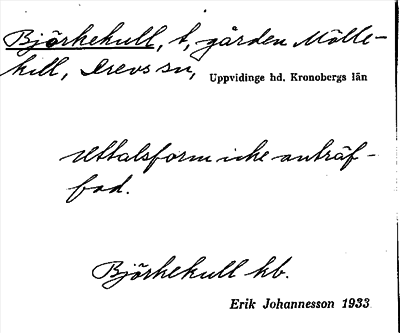 Björkekull, t, gården Mölle-
kill, Drevs sn, Uppvidinge hd. Kronobergs län
Uttalsform icke anträf-
fad.
Björkekull hb.
Erik Johannesson 1933